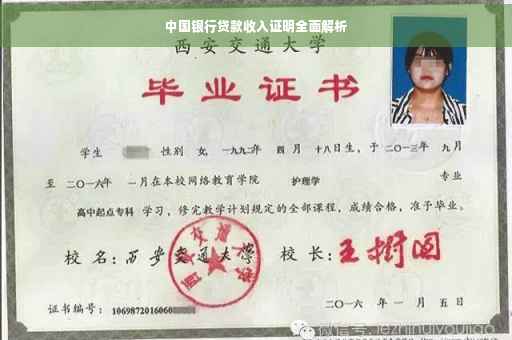 中国银行贷款收入证明全面解析
西安交通大学
毕业证书
学生 性别 女,一九九二年 四 月 十八日生,于 二〇一三年 九月
至 二〇一六年 一月在本校网络教育学院 护理学 专业
高中起点专科 学习,修完教学计划规定的全部课程,成绩合格,准予毕业。
校 名:西安交通大学 校 长:王树国
证书编号:1069872016060
二〇一六 年 一 月 五 日
微信号:lezhihuiyoujiao